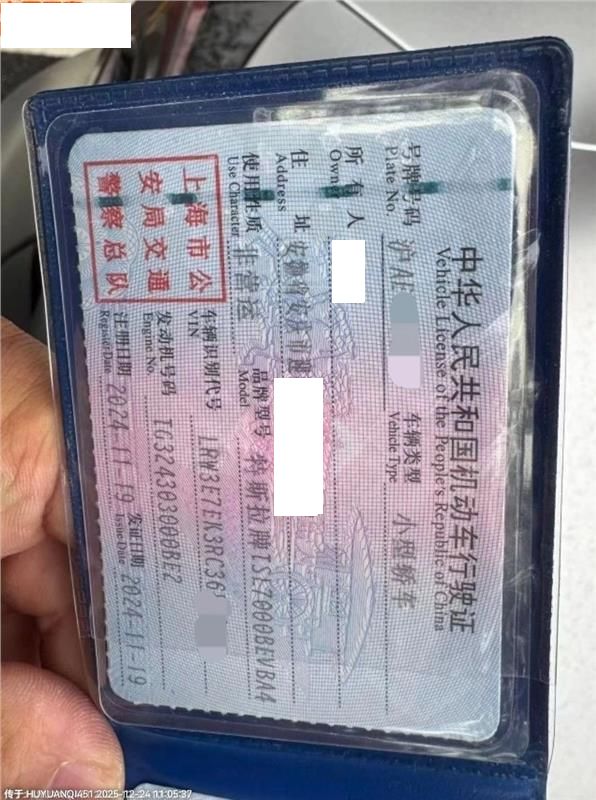 中华人民共和国机动车行驶证
Vehicle License of the People's Republic of China
号牌号码 沪AE 车辆类型 小型轿车
Plate No. Vehicle Type
所有人
Owner
住址 安徽省安庆市迎
Address
使用性质 非营运 品牌型号 特斯拉牌TSL7000BEVBA4
Use Character Model
车辆识别代号 LRW3E7EK3RC36
VIN
发动机号码 TG324303000BE2
Engine No.
注册日期 2024-11-19 发证日期 2024-11-19
Register Date Issue Date
上海市公
安局交通
警察总队
传于:HUYUANQI451 2025-12-24 11:05:37